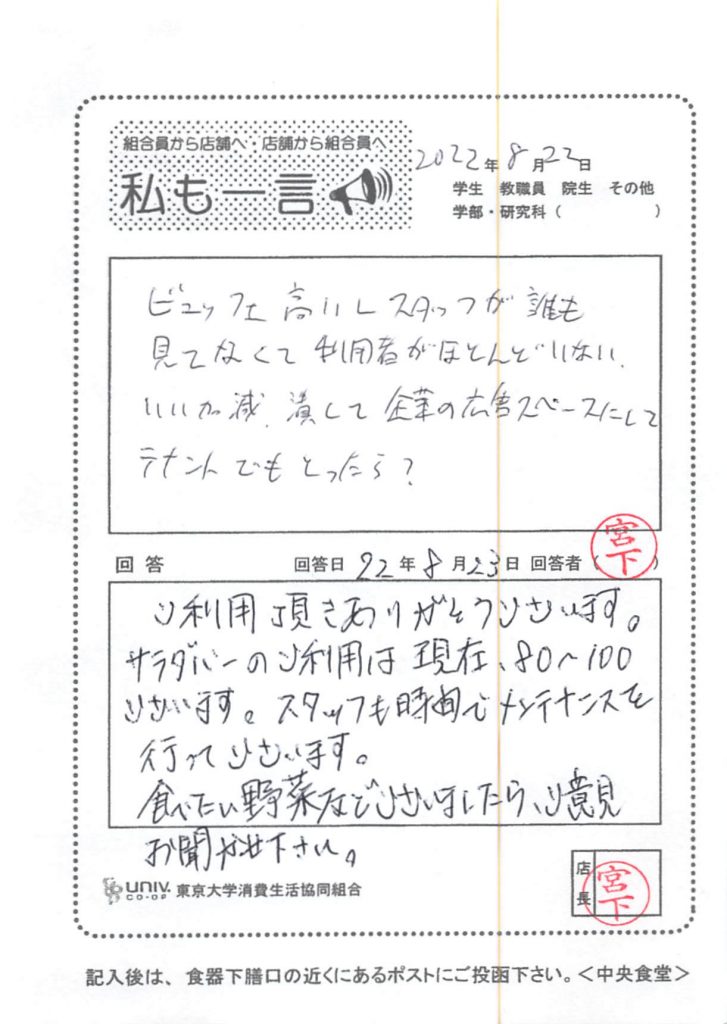 組合員から店舗へ・店舗から組合員へ
私も一言
2022年8月22日
学生 教職員 院生 その他
学部・研究科（ ）
ビュッフェ 高いしスタッフが誰も
見てなくて利用者がほとんどいない.
いい加減. 潰して企業の広告スペースにして
テナントでもとったら？
回答 回答日 22年8月23日 回答者（宮下）
ご利用頂きありがとうございます。
サラダバーのご利用は現在、80〜100
ございます。スタッフも時間でメンテナンスを
行ってございます。
食べたい野菜などございましたら、ご意見
お聞かせ下さい。
店長 宮下
UNIV. CO-OP 東京大学消費生活協同組合
記入後は、食器下膳口の近くにあるポストにご投函下さい。＜中央食堂＞